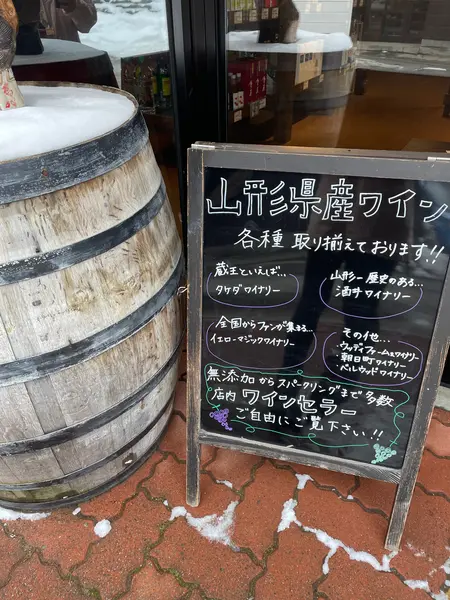 山形県産ワイン
各種 取り揃えております!!
蔵王といえば...
タケダワイナリー
山形一歴史のある...
酒井ワイナリー
全国からファンが集まる...
イエローマジックワイナリー
その他...
・ウッディファーム&ワイナリー
・朝日町ワイナリー
・ベルウッドワイナリー
無添加からスパークリングまで多数
店内 ワインセラー
ご自由にご覧下さい!!